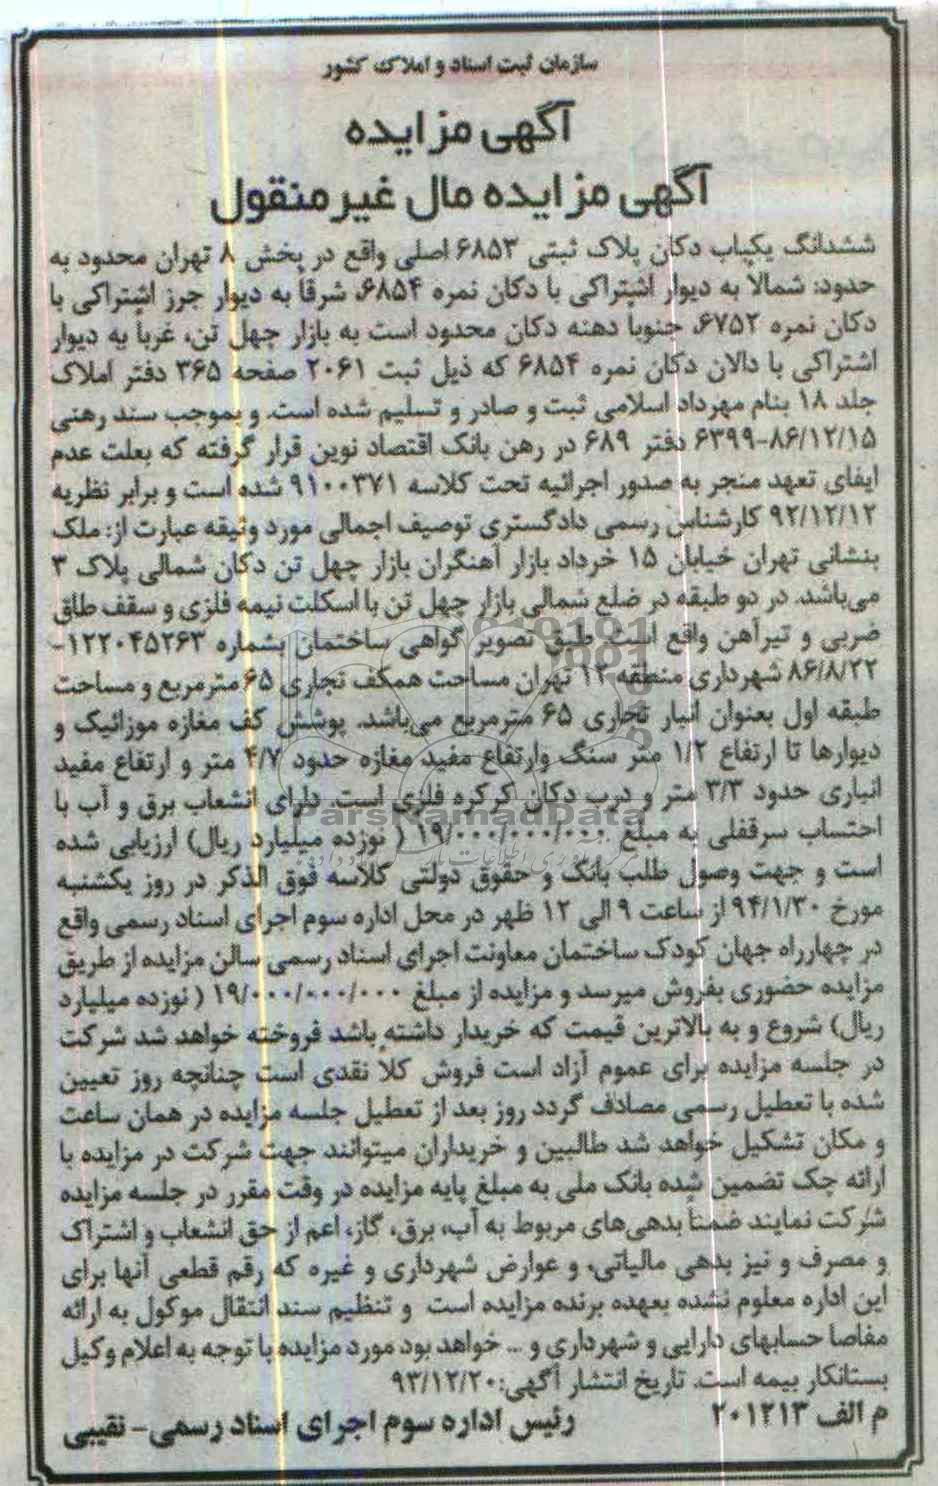 سازمان ثبت اسناد و املاک کشور
آگهی مزایده
آگهی مزایده مال غیر منقول
ششدانگ یکباب دکان پلاک ثبتی ۶۸۵۳ اصلی واقع در بخش ۸ تهران محدود به
حدود: شمالاً به دیوار اشتراکی با دکان نمره ۶۸۵۴، شرقا به دیوار جرز اشتراکی با
دکان نمره ۶۷۵۲، جنوبا دهنه دکان محدود است به بازار چهل تن، غربا به دیوار
اشتراکی با دالان دکان نمره ۶۸۵۴ که ذیل ثبت ۲۰۶۱ صفحه ۳۶۵ دفتر املاک
جلد ۱۸ بنام مهرداد اسلامی ثبت و صادر و تسلیم شده است. و بموجب سند رهنی
۶۳۹۹-۸۶/۱۲/۱۵ دفتر ۶۸۹ در رهن بانک اقتصاد نوین قرار گرفته که بعلت عدم
ایفای تعهد منجر به صدور اجرائیه تحت کلاسه ۹۱۰۰۳۷۱ شده است و برابر نظریه
۹۲/۱۲/۱۲ کارشناس رسمی دادگستری توصیف اجمالی مورد وثیقه عبارت از: ملک
بنشانی تهران خیابان ۱۵ خرداد بازار آهنگران بازار چهل تن دکان شمالی پلاک ۳
می‌باشد. در دو طبقه در ضلع شمالی بازار چهل تن با اسکلت نیمه فلزی و سقف طاق
ضربی و تیرآهن واقع است. طبق تصویر گواهی ساختمان بشماره ۱۲۲۰۴۵۲۶۳-
۸۶/۸/۲۲ شهرداری منطقه ۱۲ تهران مساحت همکف تجاری ۶۵ مترمربع و مساحت
طبقه اول بعنوان انبار تجاری ۶۵ مترمربع می‌باشد. پوشش کف مغازه موزائیک و
دیوارها تا ارتفاع ۱/۲ متر سنگ وارتفاع مفید مغازه حدود ۴/۷ متر و ارتفاع مفید
انباری حدود ۳/۳ متر و درب دکان کرکره فلزی است. دارای انشعاب برق و آب با
احتساب سرقفلی به مبلغ ۱۹/۰۰۰/۰۰۰/۰۰۰ ( نوزده میلیارد ریال) ارزیابی شده
ParsNamadData
است و جهت وصول طلب بانک و حقوق دولتی کلاسه فوق الذکر در روز یکشنبه
مورخ ۹۴/۱/۳۰ از ساعت ۹ الی ۱۲ ظهر در محل اداره سوم اجرای اسناد رسمی واقع
در چهارراه جهان کودک ساختمان معاونت اجرای اسناد رسمی سالن مزایده از طریق
مزایده حضوری بفروش میرسد و مزایده از مبلغ ۱۹/۰۰۰/۰۰۰/۰۰۰ ( نوزده میلیارد
ریال) شروع و به بالاترین قیمت که خریدار داشته باشد فروخته خواهد شد شرکت
در جلسه مزایده برای عموم آزاد است فروش کلا نقدی است چنانچه روز تعیین
شده با تعطیل رسمی مصادف گردد روز بعد از تعطیل جلسه مزایده در همان ساعت
و مکان تشکیل خواهد شد طالبین و خریداران میتوانند جهت شرکت در مزایده با
ارائه چک تضمین شده بانک ملی به مبلغ پایه مزایده در وقت مقرر در جلسه مزایده
شرکت نمایند ضمناً بدهی‌های مربوط به آب، برق، گاز، اعم از حق انشعاب و اشتراک
و مصرف و نیز بدهی مالیاتی، و عوارض شهرداری و غیره که رقم قطعی آنها برای
این اداره معلوم نشده بعهده برنده مزایده است و تنظیم سند انتقال موکول به ارائه
مفاصا حسابهای دارایی و شهرداری و ... خواهد بود مورد مزایده با توجه به اعلام وکیل
بستانکار بیمه است. تاریخ انتشار آگهی: ۹۳/۱۲/۲۰
م الف ۲۰۱۲۱۳ رئیس اداره سوم اجرای اسناد رسمی- نقیبی